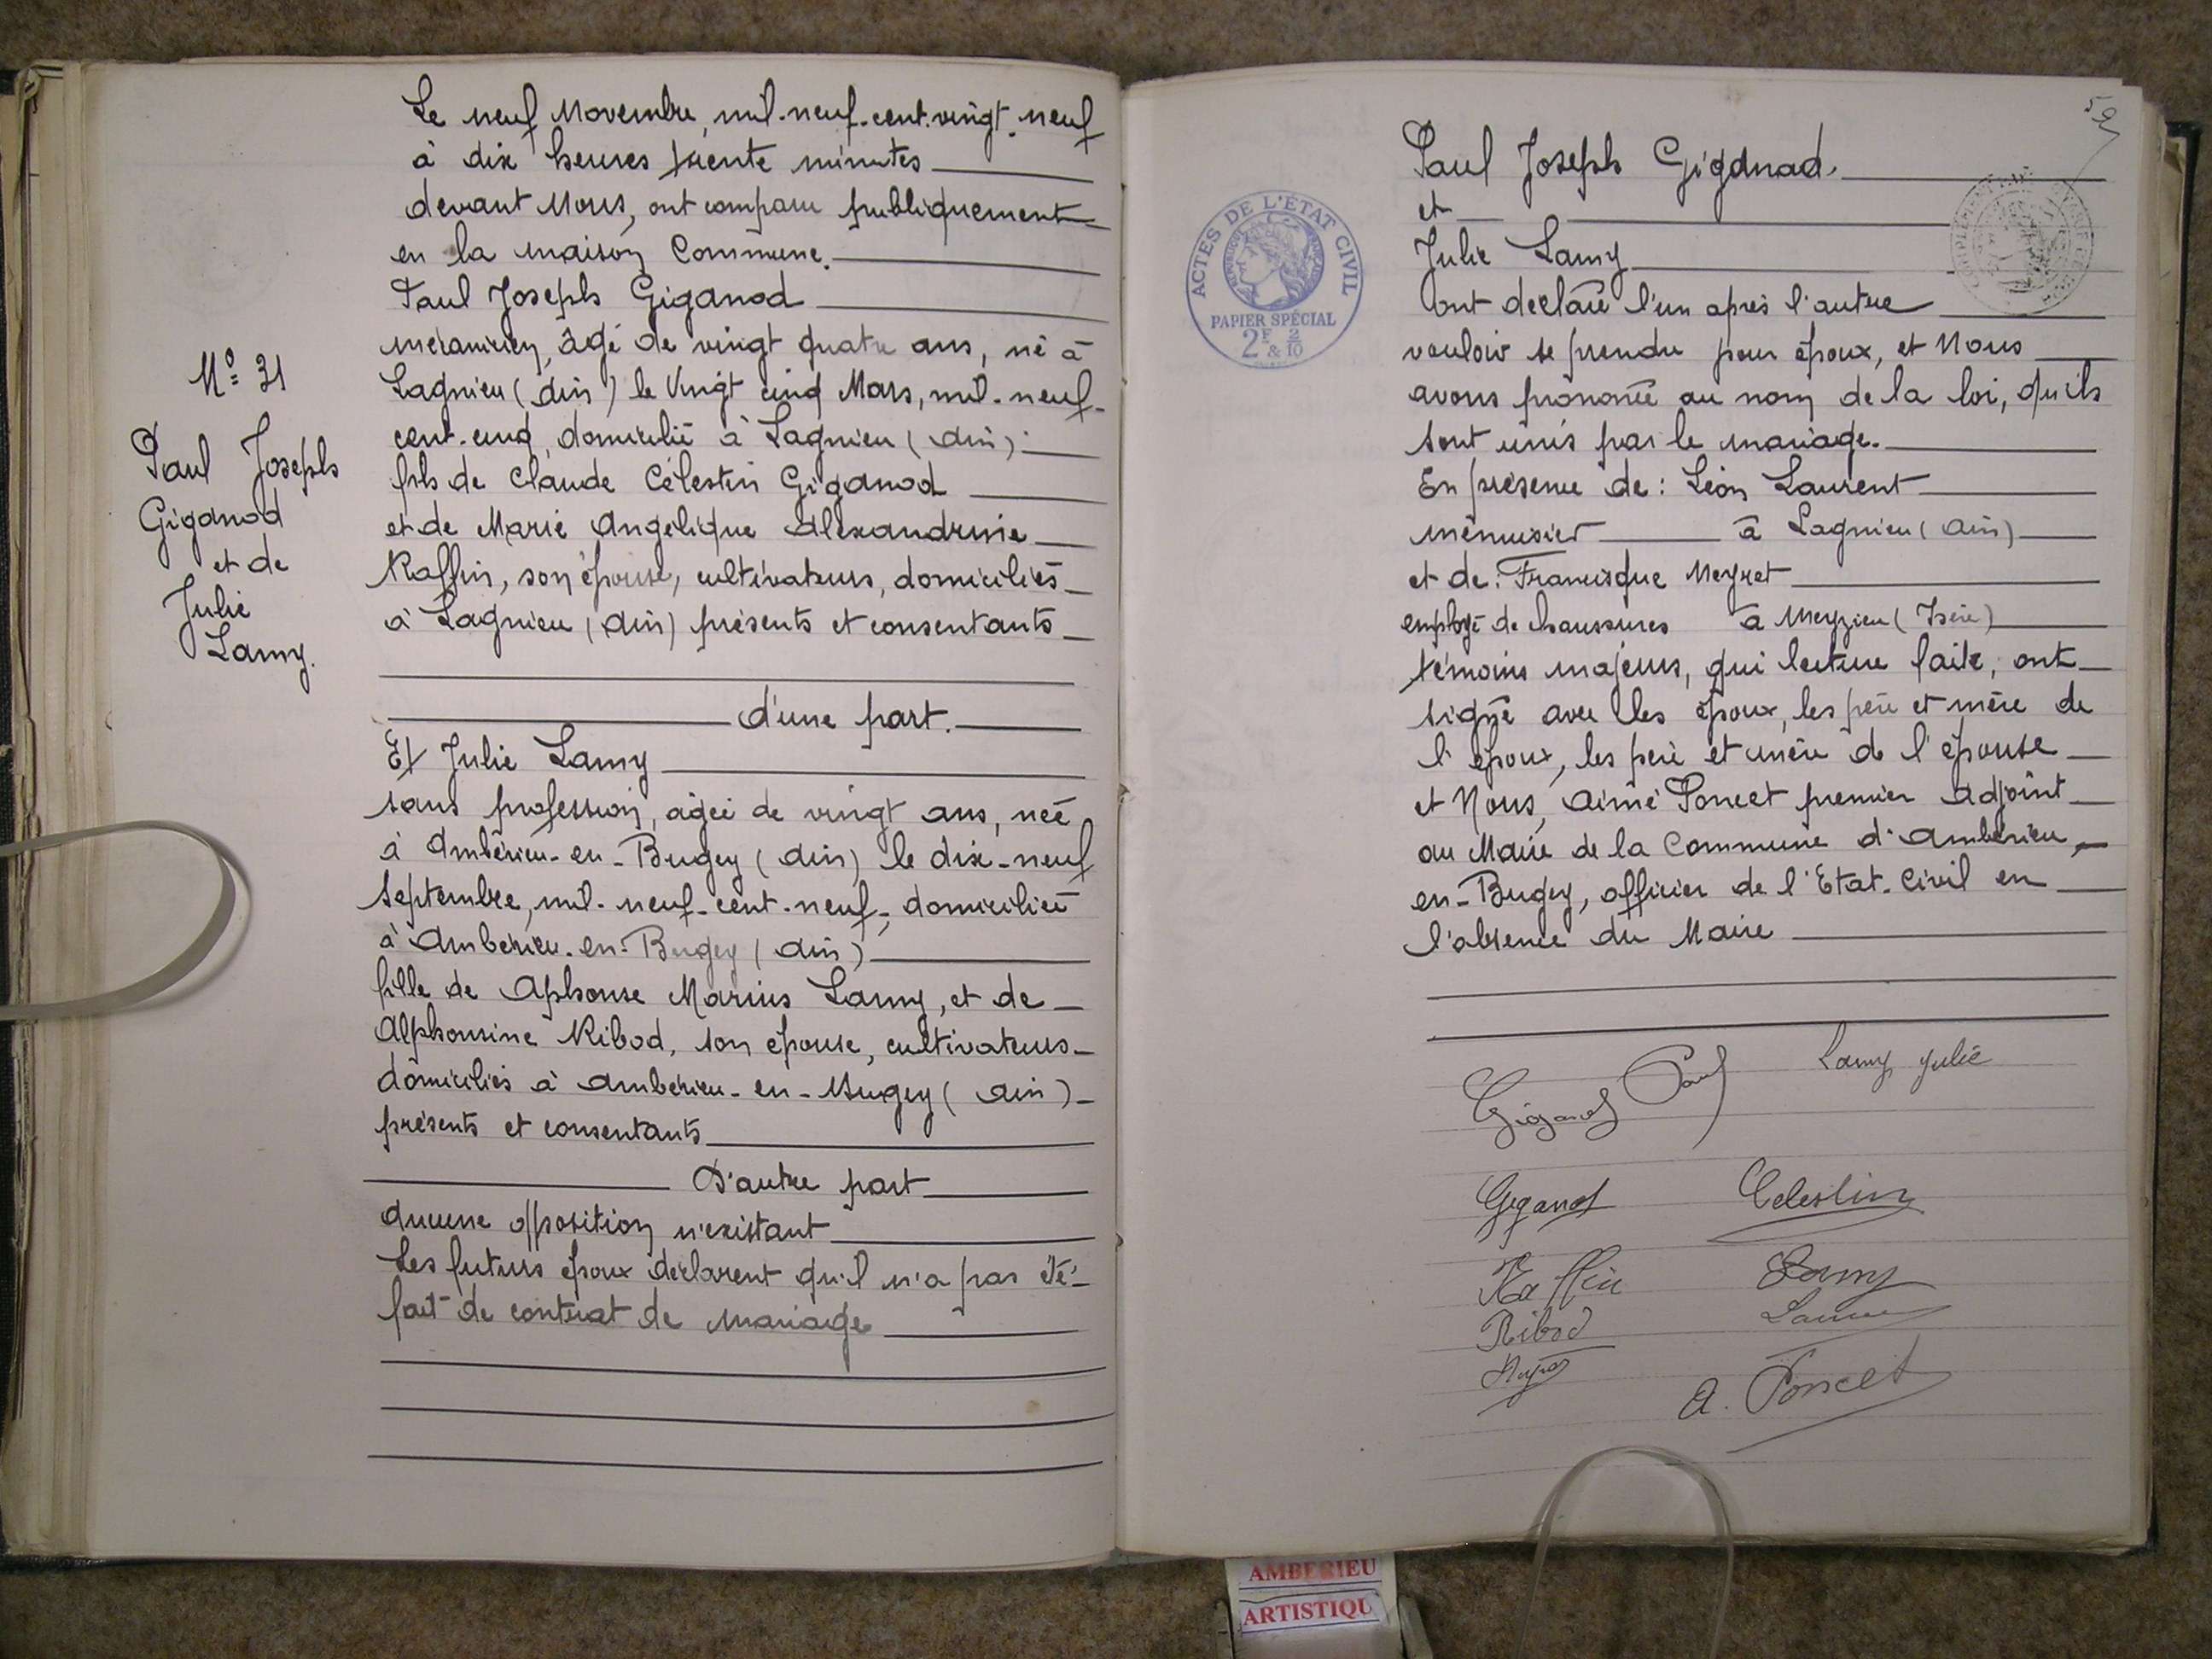 Le neuf Novembre, mil-neuf-cent-vingt-neuf
à dix heures trente minutes
devant Nous, ont comparu publiquement
en la maison Commune.
Paul Joseph Giganod
mécanicien, âgé de vingt quatre ans, né à
Lagnieu (Ain) le Vingt cinq Mars, mil-neuf-
cent-cinq, domicilié à Lagnieu (Ain).
fils de Claude Célestin Giganod
et de Marie Angélique Alexandrine
Raffin, son épouse, cultivateurs, domiciliés
à Lagnieu (Ain) présents et consentants
d'une part.
Et Julie Lamy
sans profession, agée de vingt ans, née
à Ambérieu-en-Bugey (Ain) le dix-neuf
septembre, mil-neuf-cent-neuf, domiciliée
à Ambérieu-en-Bugey (Ain)
fille de Aphonse Marius Lamy, et de
Alphonsine Ribod, son épouse, cultivateurs
domiciliés à Ambérieu-en-Bugey (Ain)
présents et consentants
D'autre part
Aucune opposition n'existant
Les futurs époux déclarent qu'il n'a pas été
fait de contrat de mariage
No 31
Paul Joseph
Giganod
et de
Julie
Lamy.
59
Paul Joseph Giganod.
et
Julie Lamy
ont déclaré l'un après l'autre
vouloir se prendre pour époux, et Nous
avons prononcé au nom de la loi, qu'ils
sont unis par le mariage.
En présence de : Léon Laurent
menuisier à Lagnieu (Ain)
et de : Francisque Meyret
employé de chaussures à Meyzieu (Isère)
témoins majeurs, qui lecture faite, ont
signé avec les époux, les père et mère de
l'époux, les père et mère de l'épouse
et Nous, Aimé Poncet premier Adjoint
au Maire de la Commune d'Ambérieu-
en-Bugey, officier de l'Etat-Civil en
l'absence du Maire
Giganod Paul Lamy Julie
Giganod Celestin
Raffin Lamy
Ribod
A. Poncet
ACTES DE L'ÉTAT CIVIL
PAPIER SPÉCIAL
2F & 2/10
AMBERIEU
ARTISTIQU